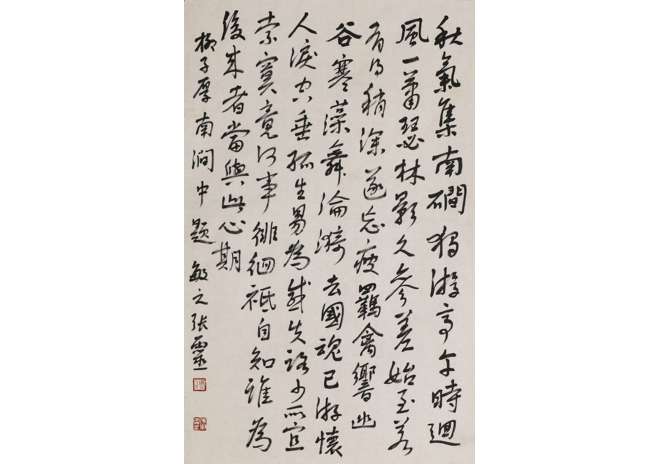 秋氣集南磵獨游亭午時迴
風一蕭瑟林影久參差始至若
有得稍深遂忘疲羈禽響幽
谷寒藻舞淪漪去國魂已游懷
人淚空垂孤生易為感失路少所宜
索寞竟何事徘徊祗自知誰為
後來者當與此心期
柳子厚南澗中題 敏之張靈